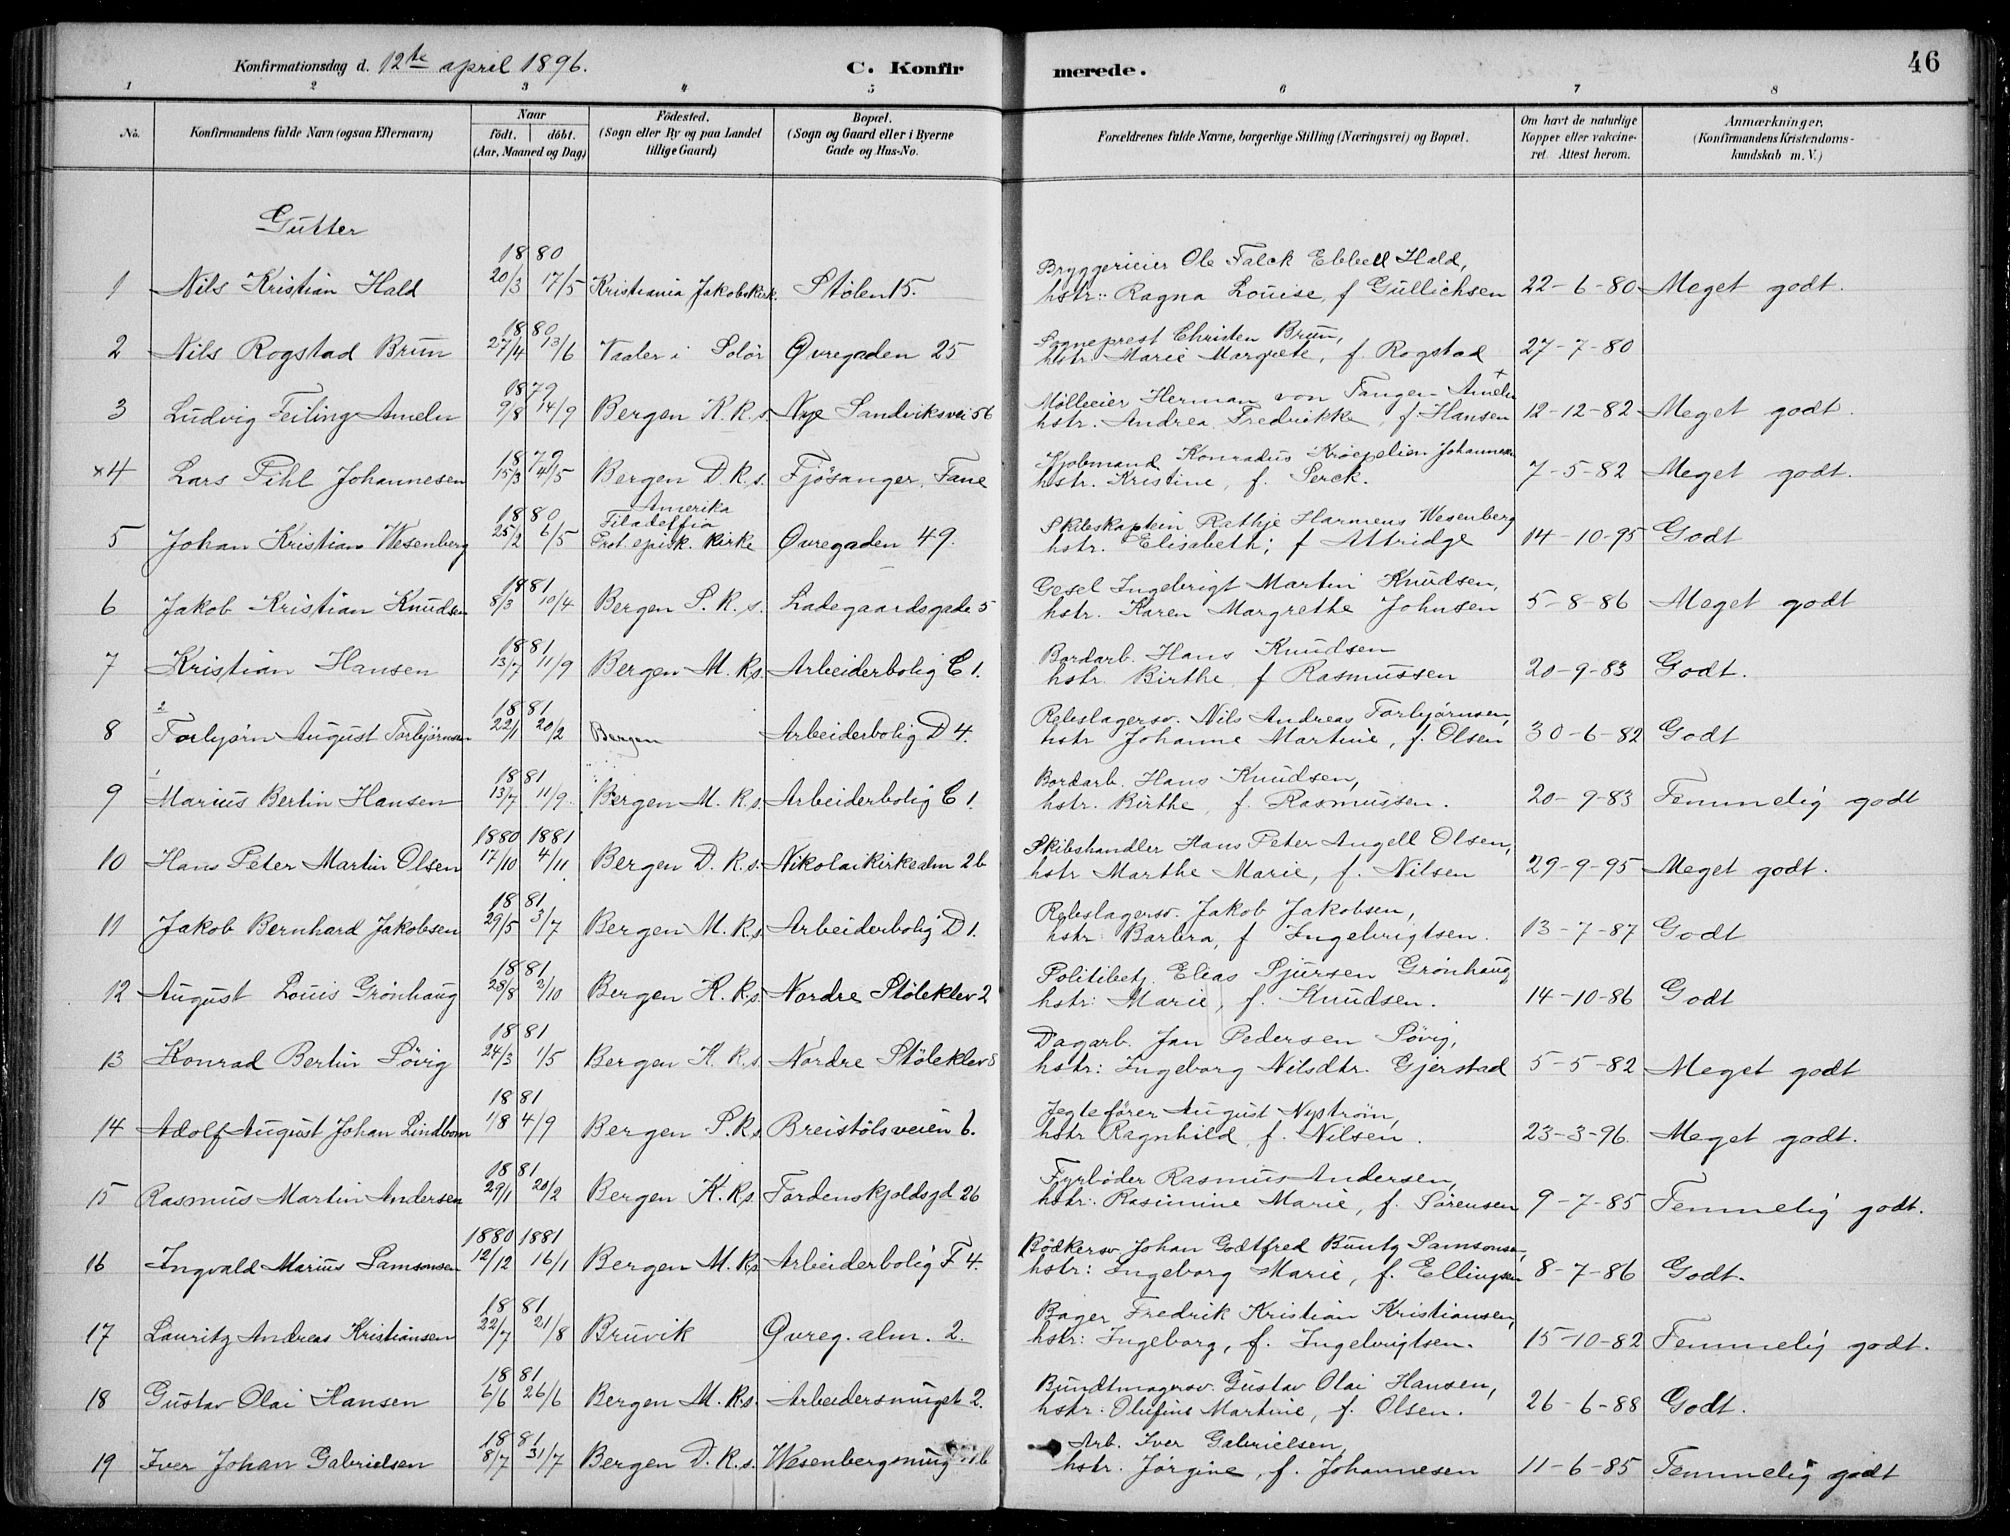 Konfirmationsdag d. 12te april 1896. C. Konfir merede. 46
1 2 3 4 5 6 7 8
No. Konfirmandens fulde Navn (ogsaa Efternavn) Naar födt. döbt. (Aar, Maaned og Dag) Födested. (Sogn eller By og paa Landet tillige Gaard) Bopæl. (Sogn og Gaard eller i Byerne Gade og Hus-No. Forældrenes fulde Navne, borgerlige Stilling (Næringsvei) og Bopæl. Om havt de naturlige Kopper eller vakcineret. Attest herom. Anmærkninger, (Konfirmandens Kristendomskundskab m. V.)
Gutter
1880 Bryggerieier Ole Falck Ebbell Hald,
1 Nils Kristian Hald 20/3 17/5 Kristiania Jakobskirk. Stølen 15. hstr: Ragna Louise, f Gullichsen 22-6-80 Meget godt.
1880 Sogneprest Christen Brun,
2 Nils Rogstad Brun 27/4 13/6 Vaaler i Solör Øvregaden 25 hstr. Marie Margrete, f. Rogstad 27-7-80
1879 Mölleeier Herman von Tangen Ameln
3 Ludvig Feiling Ameln 9/8 14/9 Bergen K. K. s. Nye Sandviksvei 56 hstr. Andrea Fredrikke, f. Hansen 12-12-82 Meget godt.
1879 Kjobmand Konradus Kröepelien Johannesen
×4 Lars Pihl Johannesen 15/3 4/5 Bergen D. K. s. Fjösanger, Fane hstr. Kristine, f. Serck. 7-5-82 Meget godt.
1880 Amerika Filadelfia Skibskaptein Rathje Harmens Wesenberg
5 Johan Kristian Wesenberg 25/2 6/5 Prot. episk. Kirke Øvregaden 49. hstr. Elisabeth, f Attridge 14-10-95 Godt
1881 Gesel Ingebrigt Martin Knudsen,
6 Jakob Kristian Knudsen 8/3 10/4 Bergen S. K. s. Ladegaardsgade 5 hstr. Karen Margrethe Johnsen 5-8-86 Meget godt
1881 Bordarb. Hans Knudsen
7 Kristian Hansen 13/7 11/9 Bergen M. K. s. Arbeiderbolig C 1. hstr. Birthe f Rasmussen 20-9-83 Godt.
2 1881 Rebslagersv. Nils Andreas Torbjørnsen,
8 Torbjørn August Torbjørnsen 22/1 20/2 Bergen Arbeiderbolig D 4. hstr Johanne Martine, f. Olsen 30-6-82 Godt
1 1881 Bordarb. Hans Knudsen,
9 Marius Bertin Hansen 13/7 11/9 Bergen M. K. s. Arbeiderbolig C 1. hstr. Birthe, f. Rasmussen. 20-9-83 Temmelig godt
1880 1881 Skibshandler Hans Peter Angell Olsen,
10 Hans Peter Martin Olsen 17/10 4/11 Bergen D. K. s. Nikolaikirkealm 26 hstr Marthe Marie, f. Nilsen 29-9-95 Meget godt.
1881 Rebslagersv. Jakob Jakobsen,
11 Jakob Bernhard Jakobsen 29/5 3/7 Bergen M. K. s. Arbeiderbolig D 1. hstr: Barbra, f Ingebrigtsen. 13-7-87 Godt
1881 Politibetj. Elias Sjursen Grønhaug
12 August Louis Grønhaug 28/8 2/10 Bergen K. K. s. Nordre Stöleklev 2 hstr: Marie, f. Knudsen. 14-10-86 Godt
1881 Dagarb. Jan Pedersen Søvig,
13 Konrad Bertin Søvig 24/3 1/5 Bergen K. K. s. Nordre Stöleklev 8 hstr: Ingeborg Nilsdtr. Gjerstad 5-5-82 Meget godt
1881 Jegtefører August Nystrøm,
14 Adolf August Johan Lindbom 1/8 4/9 Bergen S. K. s. Breistölsveien 6. hstr Ragnhild, f. Nilsen. 23-3-96. Meget godt.
1881 Fyrbøder Rasmus Andersen,
15 Rasmus Martin Andersen 29/1 20/2 Bergen K. K. s. Tordenskjoldsgd 26 hstr. Rasimine Marie, f. Sørensen 9-7-85 Temmelig godt.
1880 1881 Bødkersv Johan Godtfred Buntz Samsonsen,
16 Ingvald Marius Samsonsen 12/12 16/1 Bergen M. K. s. Arbeiderbolig F 4. hstr: Ingeborg Marie, f. Ellingsen 8-7-86 Godt.
1881 Bager Fredrik Kristian Kristiansen,
17 Lauritz Andreas Kristiansen 22/7 21/8 Bruvik Øvreg. alm. 2. hstr: Ingeborg, f. Ingebrigtsen. 15-10-82 Temmelig godt.
1881 Bundtmagersv. Gustav Olai Hansen,
18 Gustav Olai Hansen 6/6 26/6 Bergen M. K. s. Arbeidersmuget 2. hstr. Olufine Martine, f. Olsen. 26-6-88 Godt.
1881 Arb. Iver Gabrielsen,
19 Iver Johan Gabrielsen 8/7 31/7 Bergen D. K. s. Wesenbergsmug hstr. Jørgine, f. Johannesen 11-6-85 Temmelig godt